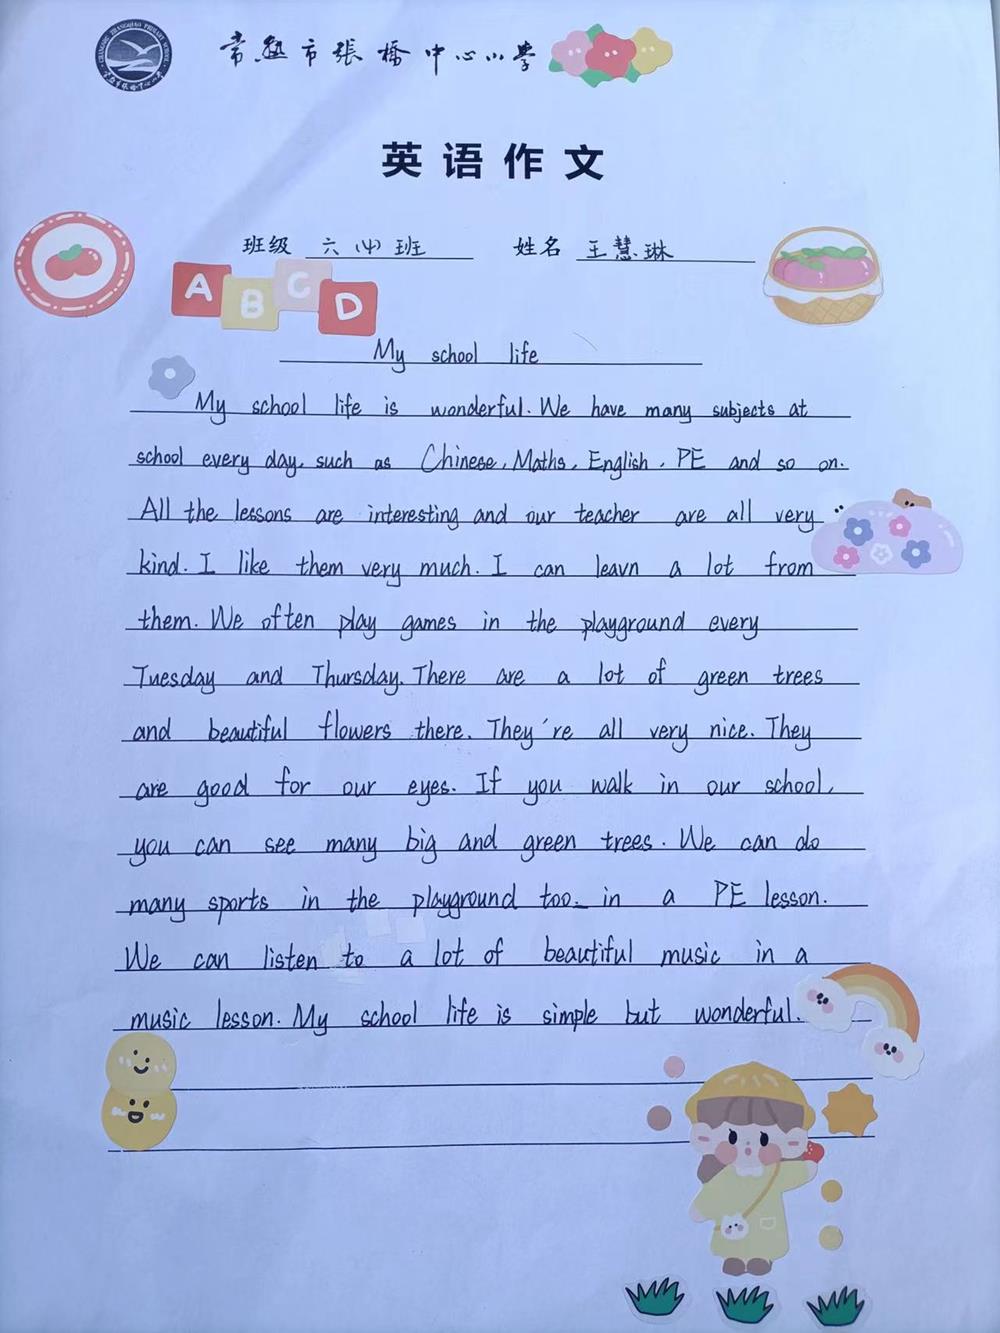 常熟市張橋中心小学
英语作文
班级 六(4)班 姓名 王慧琳
A B C D
My school life
My school life is wonderful. We have many subjects at
school every day, such as Chinese, Maths, English, PE and so on.
All the lessons are interesting and our teacher are all very
kind. I like them very much. I can leavn a lot from
them. We often play games in the playground every
Tuesday and Thursday. There are a lot of green trees
and beautiful flowers there. They're all very nice. They
are good for our eyes. If you walk in our school,
you can see many big and green trees. We can do
many sports in the playground too. in a PE lesson.
We can listen to a lot of beautiful music in a
music lesson. My school life is simple but wonderful.